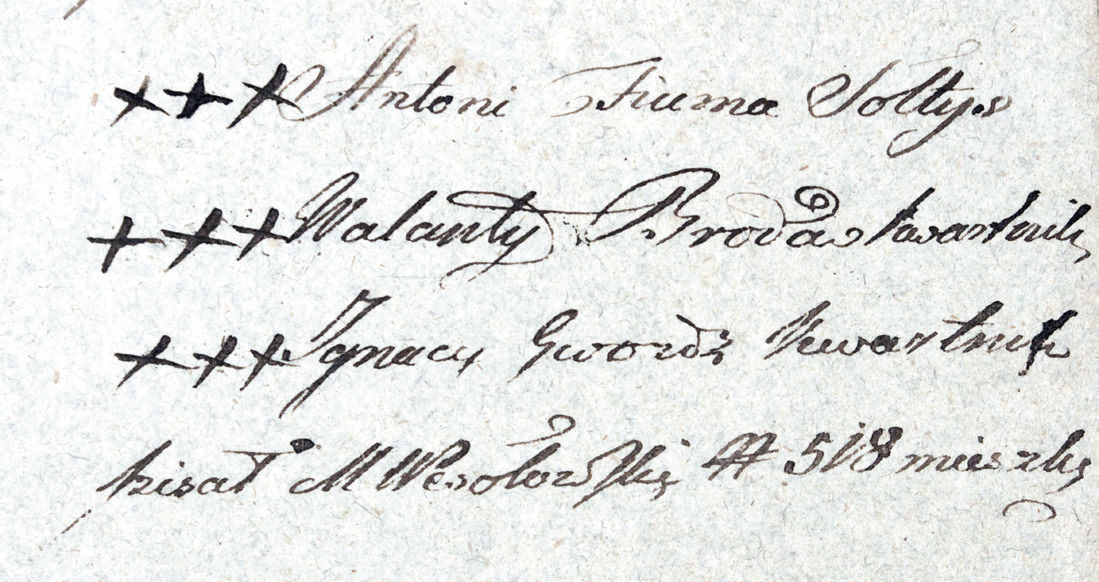 +++ Antoni Fiuma Sołtys
+++ Walanty Broda kwartnik
+++ Jgnacy Gwordź kwartnik
pisał M Wesołowski # 518 mieszka